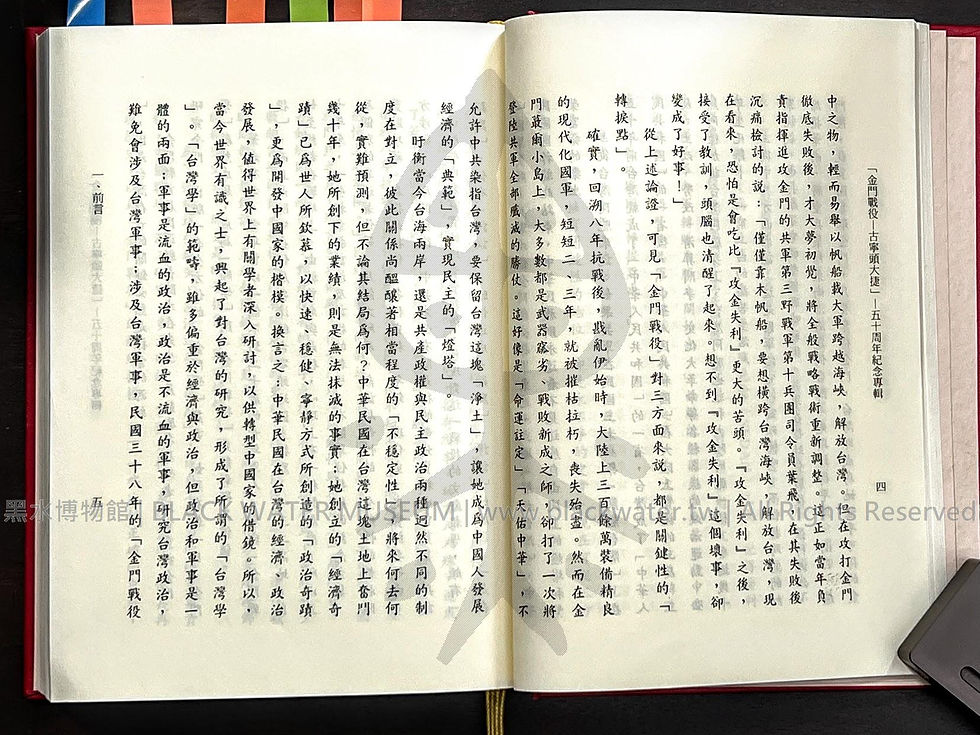 「金門戰役—古寧頭大捷」—五十周年紀念專輯
四
中之物，輕而易舉以帆船載大軍跨越海峽，解放台灣。但在攻打金門
徹底失敗後，才大夢初覺，將全般戰略戰術重新調整。這正如當年負
責指揮進攻金門的共軍第三野戰軍第十兵團司令員葉飛，在其失敗後
沉痛檢討的說：「僅僅靠木帆船，要想橫跨台灣海峽，解放台灣，現
在看來，恐怕是會吃比『攻金失利』更大的苦頭。『攻金失利』之後，
接受了教訓，頭腦也清醒了起來。想不到『攻金失利』這個壞事，卻
變成了好事！」
從上述論證，可見「金門戰役」對三方面來說，都是關鍵性的「
轉捩點」。
確實，回溯八年抗戰後，戡亂伊始時，大陸上三百餘萬裝備精良
的現代化國軍，短短二、三年，就被摧枯拉朽，喪失殆盡。然而在金
門蕞爾小島上，大多數都是武器窳劣、戰敗新成之師，卻打了一次將
登陸共軍全部殲滅的勝仗。這好像是「命運註定」「天佑中華」，不
允許中共染指台灣，要保留台灣這塊「淨土」，讓她成為中國人發展
經濟的「典範」，實現民主的「燈塔」。
盱衡當今台海兩岸，還是共產政權與民主政治兩種迥然不同的制
度在對立，彼此關係尚醞釀著相當程度的「不穩定性」，將來何去何
從，實難預測，但不論其結局為何？中華民國在台灣這塊土地上奮鬥
幾十年，她所創下的業績，則是無法抹滅的事實：她創立的「經濟奇
蹟」已為世人所欽慕，以快速、穩健、寧靜方式所創造的「政治奇蹟
」，更為開發中國家的楷模。換言之：中華民國在台灣的經濟、政治
發展，值得世界上有關學者深入研討，以供轉型中國家的借鏡。所以，
當今世界有識之士，興起了對台灣的研究，形成了所謂的「台灣學
」。「台灣學」的範疇，雖多偏重於經濟與政治，但政治和軍事是一
體的兩面；軍事是流血的政治，政治是不流血的軍事，研究台灣政治，
難免會涉及台灣軍事；涉及台灣軍事，民國三十八年的「金門戰役
一、前言
五
黑水博物館 | BLACK WATER MUSEUM | www.blackwater.tw | All Rights Reserved